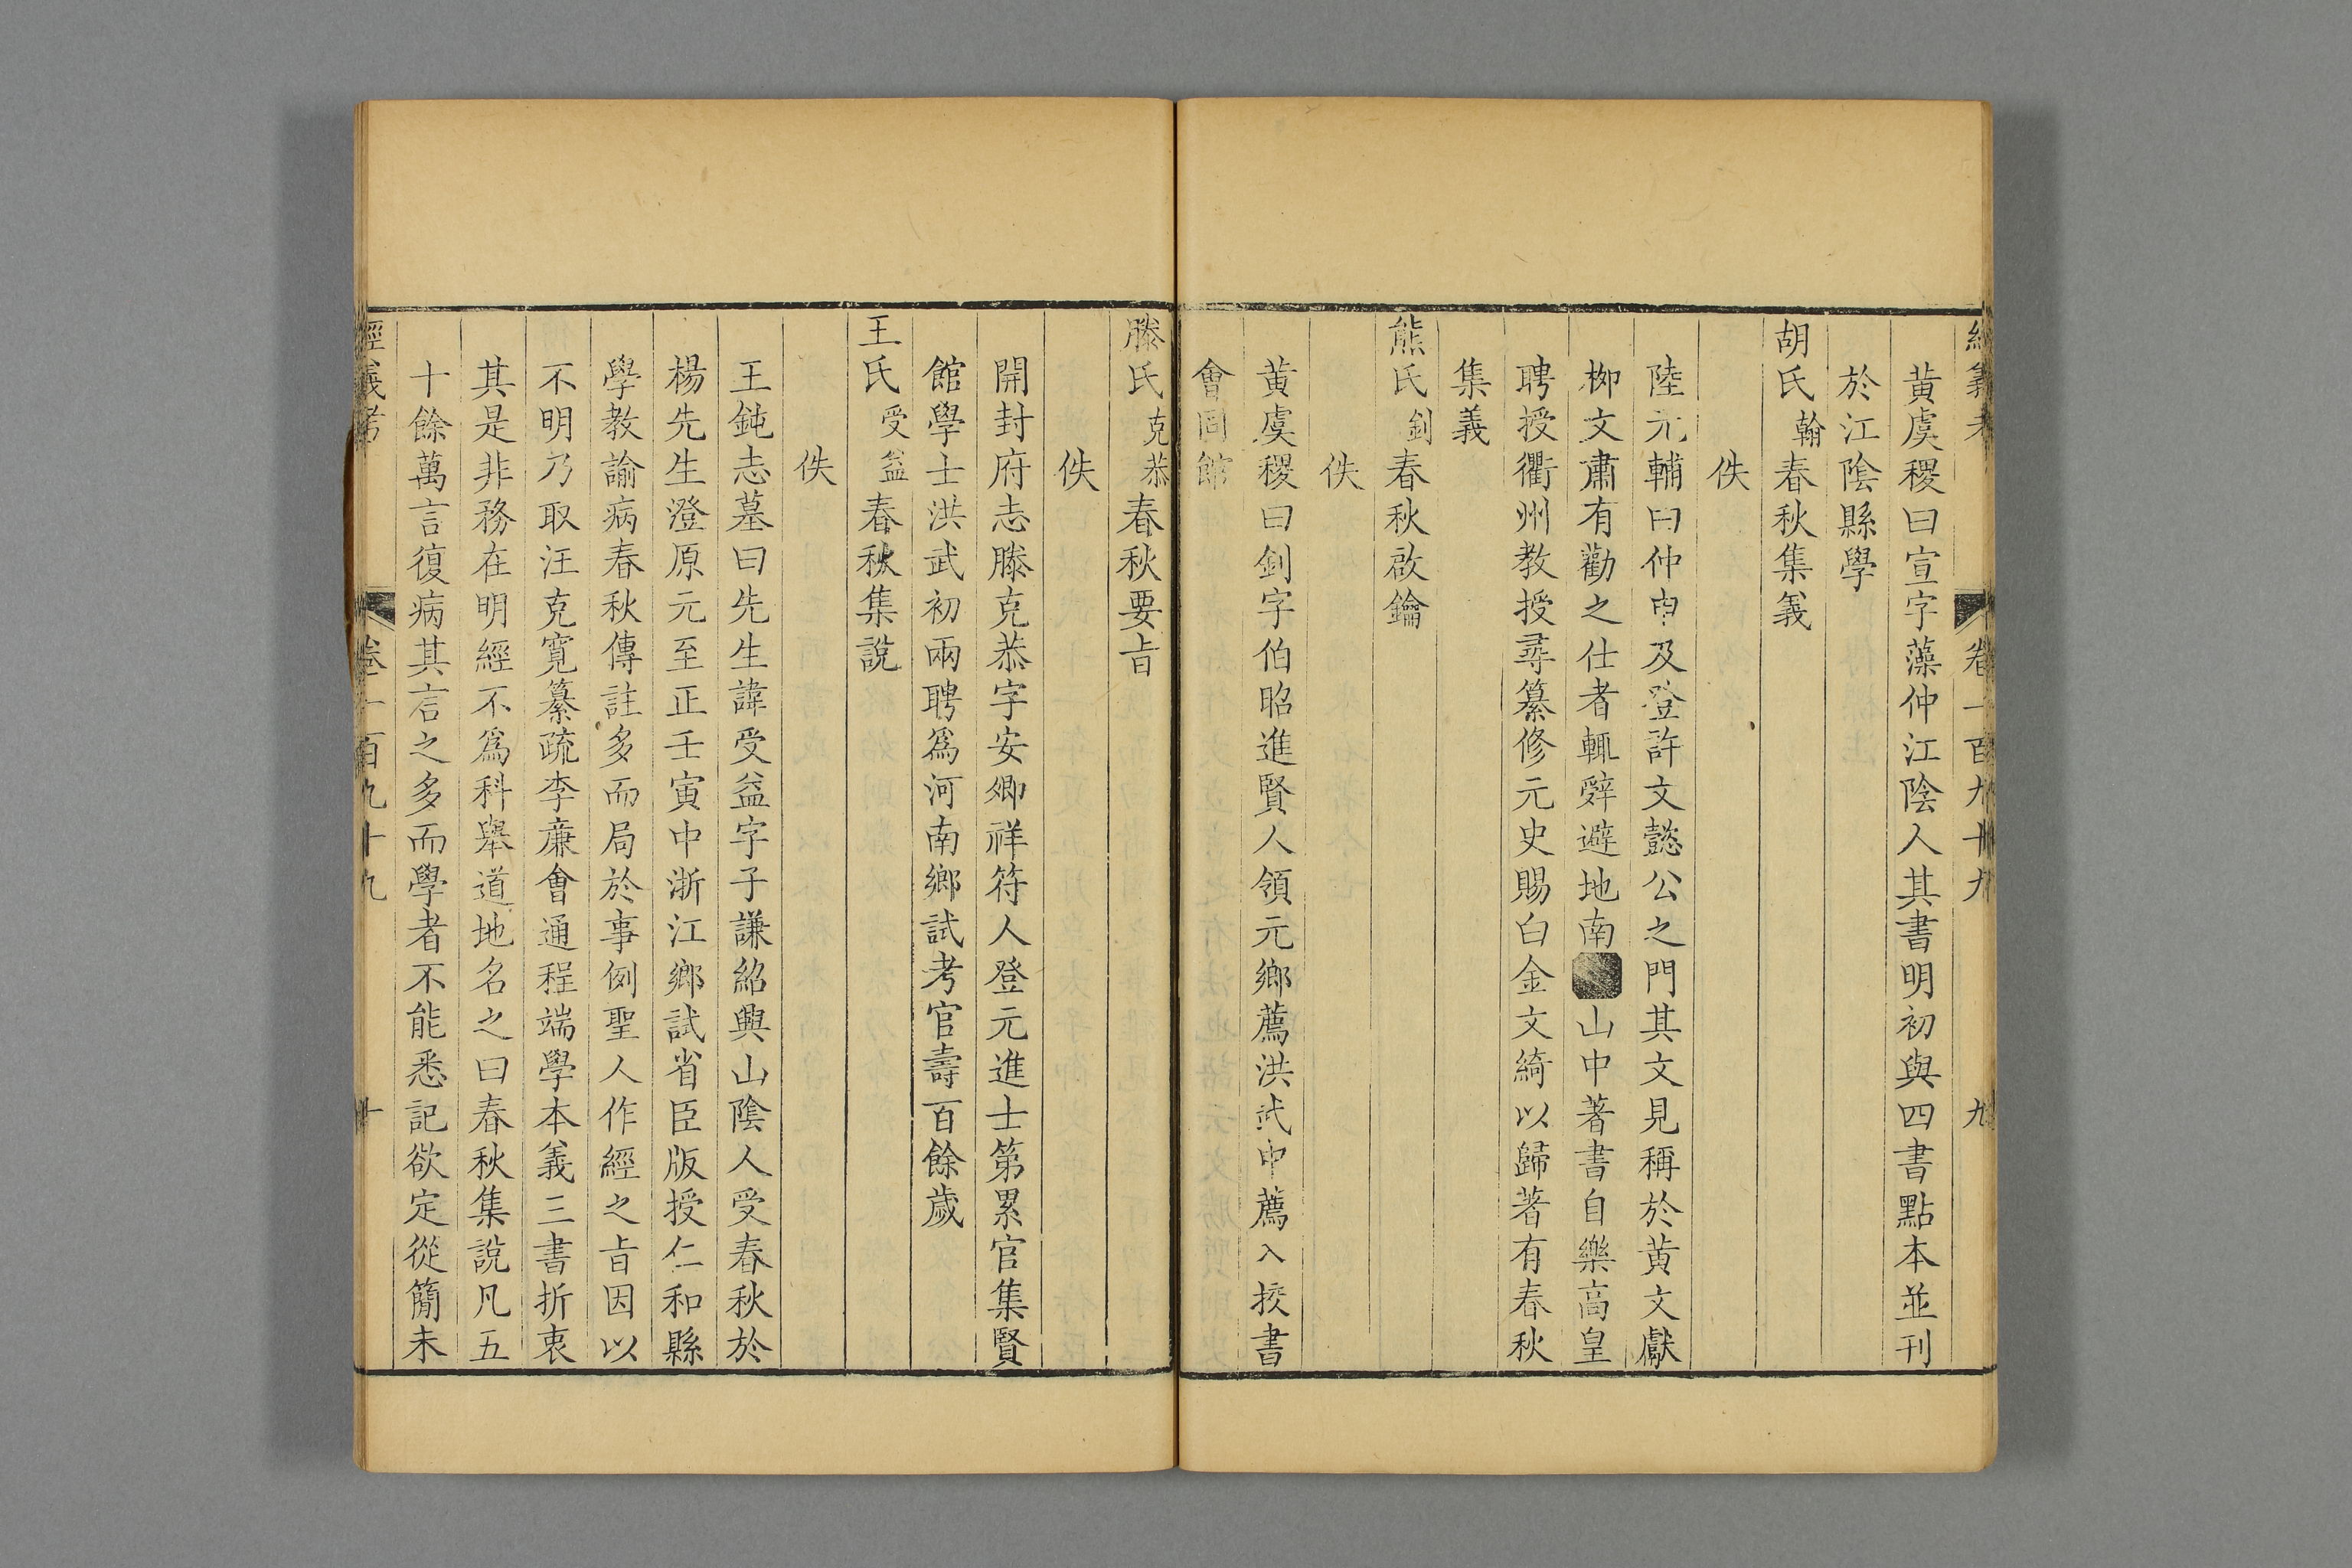 經義考 卷一百九十九 九
黃虞稷曰宣字藻仲江陰人其書明初與四書點本並刊
於江陰縣學
胡氏翰春秋集義
佚
陸元輔曰仲申及登許文懿公之門其文見稱於黃文獻
柳文肅有勸之仕者輒辭避地南山中著書自樂高皇
聘授衢州教授尋纂修元史賜白金文綺以歸著有春秋
集義
熊氏釗春秋啟鑰
佚
黃虞稷曰釗字伯昭進賢人領元鄉薦洪武中薦入挍書
會同館
滕氏克恭春秋要旨
佚
開封府志滕克恭字安卿祥符人登元進士第累官集賢
館學士洪武初兩聘爲河南鄉試考官壽百餘歲
王氏受益春秋集說
佚
王鈍志墓曰先生諱受益字子謙紹興山陰人受春秋於
楊先生澄原元至正壬寅中浙江鄉試省臣版授仁和縣
學教諭病春秋傳註多而局於事例聖人作經之旨因以
不明乃取汪克寬纂疏李廉會通程端學本義三書折衷
其是非務在明經不爲科舉道地名之曰春秋集說凡五
十餘萬言復病其言之多而學者不能悉記欲定從簡未
經義考 卷一百九十九 十